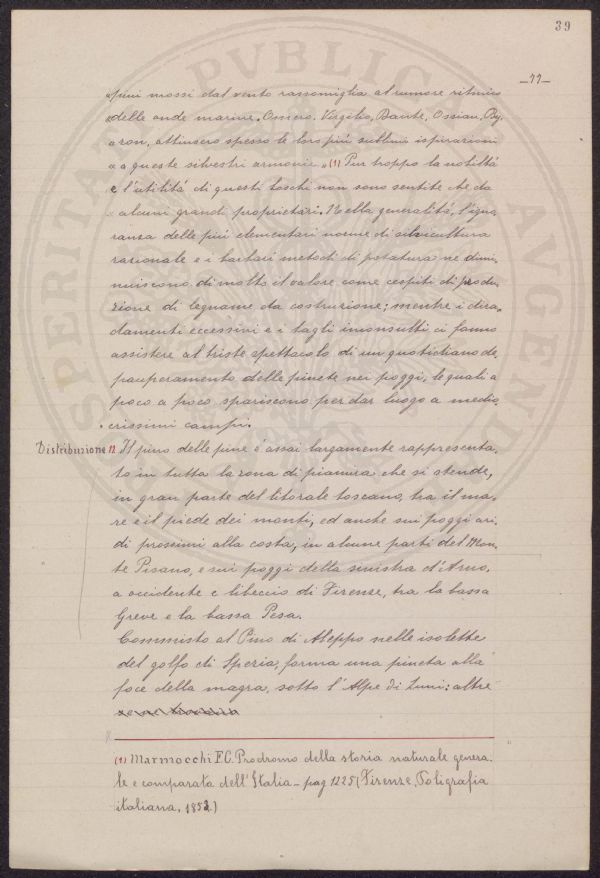 39
_77_
«pini mossi dal vento rassomiglia al rumore ritmico
«delle onde marine. Omero, Virgilio, Dante, Ossian, By,
«ron, attinsero spesso le loro più sublimi ispirazioni
«a queste silvestri armonie.» (1) Pur troppo la nobiltá
e l'utilitá di questi boschi non sono sentite che da
alcuni grandi proprietari. Nella generalitá, l'igno
ranza delle piú elementari norme di silvicultura
razionale e i barbari metodi di potatura ne dimi,
nuiscono di molto il valore come cespiti di produ,
zione di legname da costruzione; mentre i dira,
damenti eccessivi e i tagli inconsulti ci fanno
assistere al triste spettacolo di un quotidiano de,
pauperamento delle pinete nei poggi, le quali a
poco a poco spariscono per dar luogo a medio,
crissimi campi.
Distribuzione 12. Il pino delle pine é assai largamente rappresenta,
to in tutta la zona di pianura che si stende,
in gran parte del litorale toscano, tra il ma,
re e il piede dei monti, ed anche sui poggi ari,
di prossimi alla costa, in alcune parti del Mon,
te Pisano, e sui poggi della sinistra d'Arno,
a occidente e libeccio di Firenze, tra la bassa
Greve e la bassa Pesa.
Commisto al Pino di Aleppo nelle isolette
del golfo di Spezia, forma una pineta alla
foce della magra, sotto l'Alpe di Luni: altre
(1) Marmocchi F.C. Prodromo della storia naturale genera,
le e comparata dell'Italia _ pag 1225 (Firenze, Poligrafia
italiana, 1853.)
PROSPERITATI PVBLICAE AVGENDAE